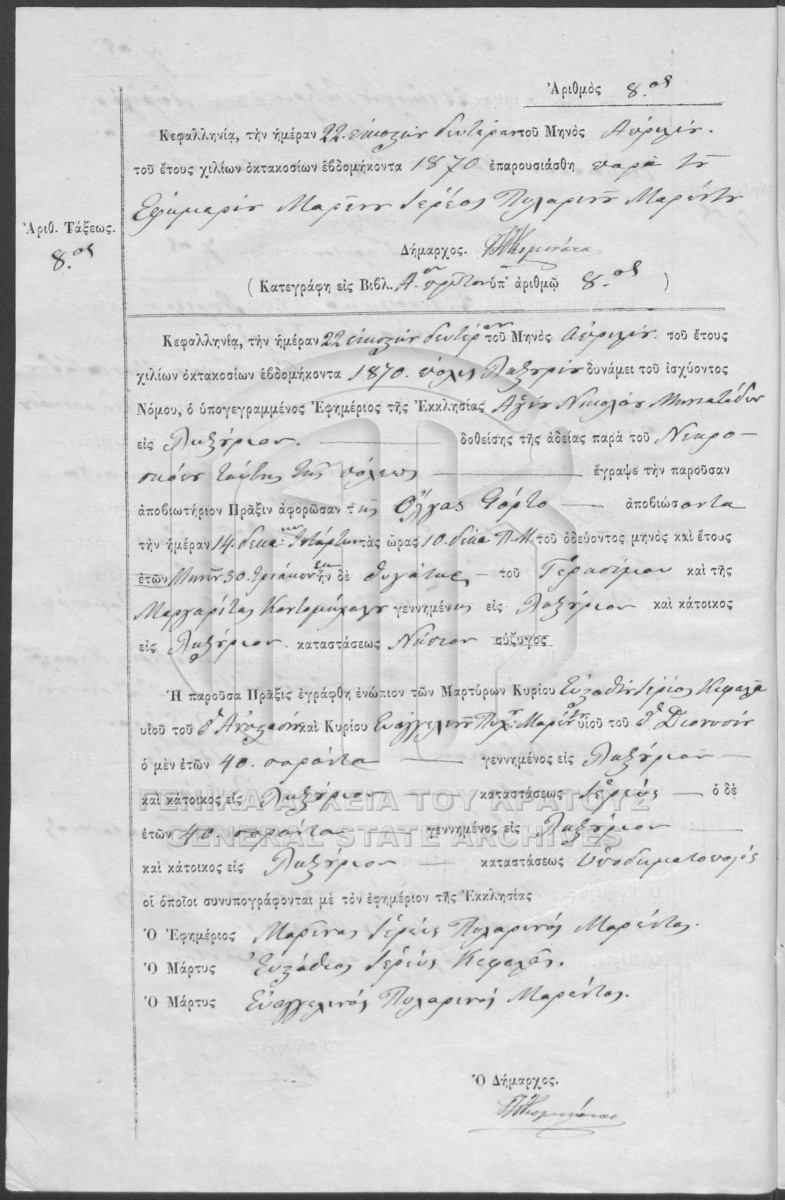 Ἀριθμὸς 8.ος
Κεφαλληνίᾳ, τὴν ἡμέραν 22. εἰκοστὴν δευτέραν τοῦ Μηνὸς Ἀπριλίου.
τοῦ ἔτους χιλίων ὀκτακοσίων ἑβδομήκοντα 1870 ἐπαρουσιάσθη παρὰ τοῦ
Ἐφημερίου Μαρίνου Ἱερέος Πυλαρινοῦ Μαρέντου
Ἀριθ. Τάξεως.
8.ος
Δήμαρχος.
( Κατεγράφη εἰς Βιβλ. Α.ον πρῶτον ὑπ' ἀριθμῷ 8.ος )
Κεφαλληνίᾳ, τὴν ἡμέραν 22 εἰκοστὴν δευτέραν τοῦ Μηνὸς Ἀπριλίου. τοῦ ἔτους
χιλίων ὀκτακοσίων ἑβδομήκοντα 1870. πόλις Ληξουρίου δυνάμει τοῦ ἰσχύοντος
Νόμου, ὁ ὑπογεγραμμένος Ἐφημέριος τῆς Ἐκκλησίας Ἁγίου Νικολάου Μηνιατάδων
εἰς Ληξούριον. δοθείσης τῆς ἀδείας παρὰ τοῦ Νεκρο-
σκόπου ταύτης τῆς πόλεως ἔγραψε τὴν παροῦσαν
ἀποβιωτήριον Πρᾶξιν ἀφορῶσαν τῆς Ὄλγας ἀποβιώσαντα
τὴν ἡμέραν 14. δεκάτην τετάρτην τὰς ὥρας 10. δέκα Π.Μ. τοῦ ὁδεύοντος μηνὸς καὶ ἔτους
ἐτῶν Μηνῶν 30. τριάκοντα ἦν δὲ θυγάτηρ τοῦ Γερασίμου καὶ τῆς
Μαργαρίτας Κοντομίχαλου γεννημένης εἰς Ληξούριον καὶ κάτοικος
εἰς Ληξούριον. καταστάσεως Νήπιον σύζυγος
Ἡ παροῦσα Πρᾶξις ἐγράφθη ἐνώπιον τῶν Μαρτύρων Κυρίου Εὐσταθίου Ἱερέος Κεφαλᾶ
υἱοῦ τοῦ π. Ἀναστασίου καὶ Κυρίου Εὐαγγελινοῦ Πυλ: Μαρέντου υἱοῦ τοῦ π. Διονυσίου
ὁ μὲν ἐτῶν 40. σαράντα γεννημένος εἰς Ληξούριον
καὶ κάτοικος εἰς Ληξούριον καταστάσεως Ἱερεύς ὁ δὲ
ΓΕΝΙΚΑ ΑΡΧΕΙΑ ΤΟΥ ΚΡΑΤΟΥΣ
ἐτῶν 40. σαράντα γεννημένος εἰς Ληξούριον
GENERAL STATE ARCHIVES
καὶ κάτοικος εἰς Ληξούριον καταστάσεως Ὑποδηματοποιός
οἱ ὁποῖοι συνυπογράφονται μὲ τὸν ἐφημέριον τῆς Ἐκκλησίας
Ὁ Ἐφημέριος Μαρίνος Ἱερεύς Πυλαρινός Μαρέντος.
Ὁ Μάρτυς Εὐστάθιος Ἱερεύς Κεφαλᾶς.
Ὁ Μάρτυς Εὐαγγελινός Πυλαρινός Μαρέντος.
Ὁ Δήμαρχος.